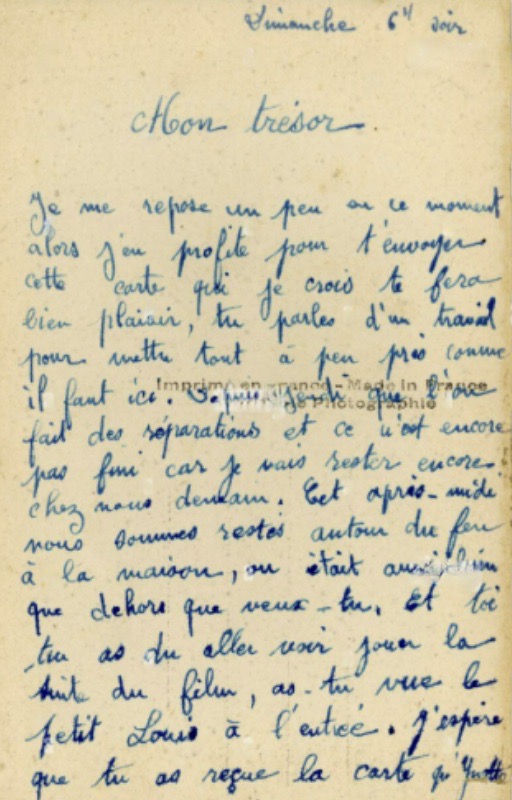 Dimanche 6h soir
Mon trésor
Je me repose un peu en ce moment
alors j'en profite pour t'envoyer
cette carte qui je crois te fera
bien plaisir, tu parles d'un travail
pour mettre tout à peu près comme
Imprimé en France - Made in France
il faut ici. Depuis jeudi que l'on
Photographie
fait des réparations et ce n'est encore
pas fini car je vais rester encore
chez nous demain. Cet après-midi
nous sommes restés autour du feu
à la maison, on était aussi bien
que dehors que veux-tu. Et toi
tu as du aller voir jouer la
suite du film, as-tu vue le
petit Louis à l'entrée. J'espère
que tu as reçue la carte qu'Yvette